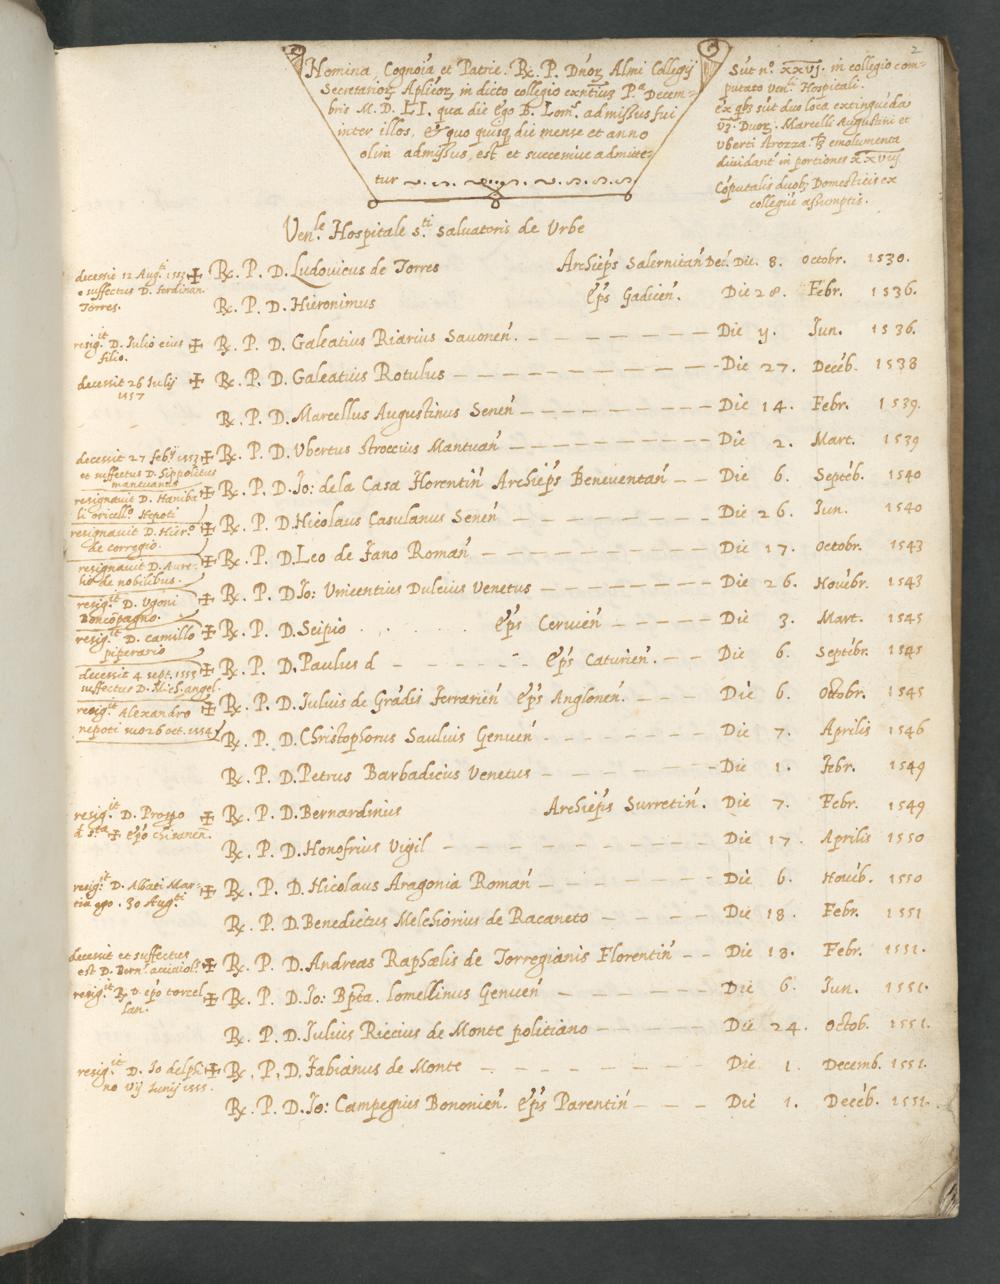 2
Nomina, Cognoīa et Patrie. Rx. P. Dnoꝝ Almi Collegij
Secretarioꝝ Aplicoꝝ in dicto collegio exn̄tium P.ª Decem=
bris M. D. LI. qua die Ego B. Lom.s admissus fui
inter illos, & quo quisq; die mense et anno
olim admissus est et successive admitte=
tur
Sūt n.º xxvj. in collegio com=
putato Ven.li Hospitali.
ex qbꝫ sūt duo loca extinguēda
vꝫ. Duoꝝ. Marcelli Augustini et
Uberti Strozza: emolumenta
dividant' in portiones xxviij
Cōputatis duobꝫ Domesticis ex
collegiis assumptis.
Ven.le Hospitale s.ti salvatoris de Urbe
decessit 12 Aug.ti 1553
e suffectus D. ferdinan.
Torres.
✠ Rx. P. D. Ludovicus de Torres Archiēps Salernitan̄ Die. 8. octobr. 1530.
Rx. P. D. Hieronimus Ēps Gadicen̄. Die 28. Febr. 1536.
resig.it D. Julio eius
filio.
✠ Rx. P. D. Galeatius Riarius Savonen̄. Die y. Jun. 1536.
decessit 26 Julij
1557
✠ Rx. P. D. Galeatius Rotulus Die 27. Decēb. 1538
Rx. P. D. Marcellus Augustinus Senen̄ Die 14. Febr. 1539.
decessit 27 feb.ij 1553
et suffectus D. Hippolitus
mantuanus
✠ Rx. P. D. Ubertus Stroccius Mantuan̄ Die 2. Mart. 1539
resignavit D. Haniba
li oricell.º Nepoti
✠ Rx. P. D. Jo: dela Casa Florentin̄ Archiēps Beneventan̄ Die 6. Septēb. 1540
resignavit D. Hier.º
de corregio.
✠ Rx. P. D. Nicolaus Casulanus Senen̄ Die 26. Jun. 1540
resignavit D. Aure=
lio de nobilibus.
✠ Rx. P. D. Leo de Fano Roman̄ Die 17. octobr. 1543
resig.it D. Ugoni
Boncōpagno.
✠ Rx. P. D Jo: Vincentius Dulcius Venetus Die 26. Novēbr. 1543
resig.it D. Camillo
piperario
✠ Rx. P. D. Scipio ēps Cervien̄ Die 3. Mart. 1545
decessit 4 sept. 1555
suffectus D. Mich. angel.
✠ Rx. P. D. Paulus d ēps Caturien̄. Die 6. Septēbr. 1545
resig.it Alexandro
nepoti suo 26 oct. 1554
✠ Rx. P. D. Julius de Grādis Ferrarien̄ Ēps Anglonen̄. Die 6. Octobr. 1545
Rx. P. D. Christophorus Saulius Genuen̄ Die 7. Aprilis 1546
Rx. P. D. Petrus Barbadicus Venetus Die 1. Febr. 1549
resig.it D. Prospo
d s.ta ✠ epō chisanen̄.
✠ Rx. P. D. Bernardinius Archiēps Surretin̄. Die 7. Febr. 1549
Rx. P. D. Honofrius Vigil Die 17. Aprilis 1550
resig.it D. Abbati Mar=
tinego. 30 Aug.ti
✠ Rx. P. D. Nicolaus Aragonia Roman̄ Die 6. Novēb. 1550
Rx. P. D. Benedictus Melchiorius de Racaneto Die 18. Febr. 1551
decessit et suffectus
est D. Bern.s acciaiol.s
✠ Rx. P. D. Andreas Raphælis de Torregianis Florentin̄ Die 18. Febr. 1551.
resig.it Rx D epō torcel
lan.
✠ Rx. P. D. Jo: Bp̄ta. Lomellinus Genuen̄ Die 6. Jun. 1551.
Rx. P. D. Julius Riccius de Monte politiano Die 24. Octob. 1551.
resig.it D. Jo delphi
no vij Junij 1555.
✠ Rx. P. D. Fabianus de Monte Die 1. Decemb. 1551.
Rx. P. D. Jo: Campegius Bononien̄. Ēps Parentin̄ Die 1. Decēb. 1551.